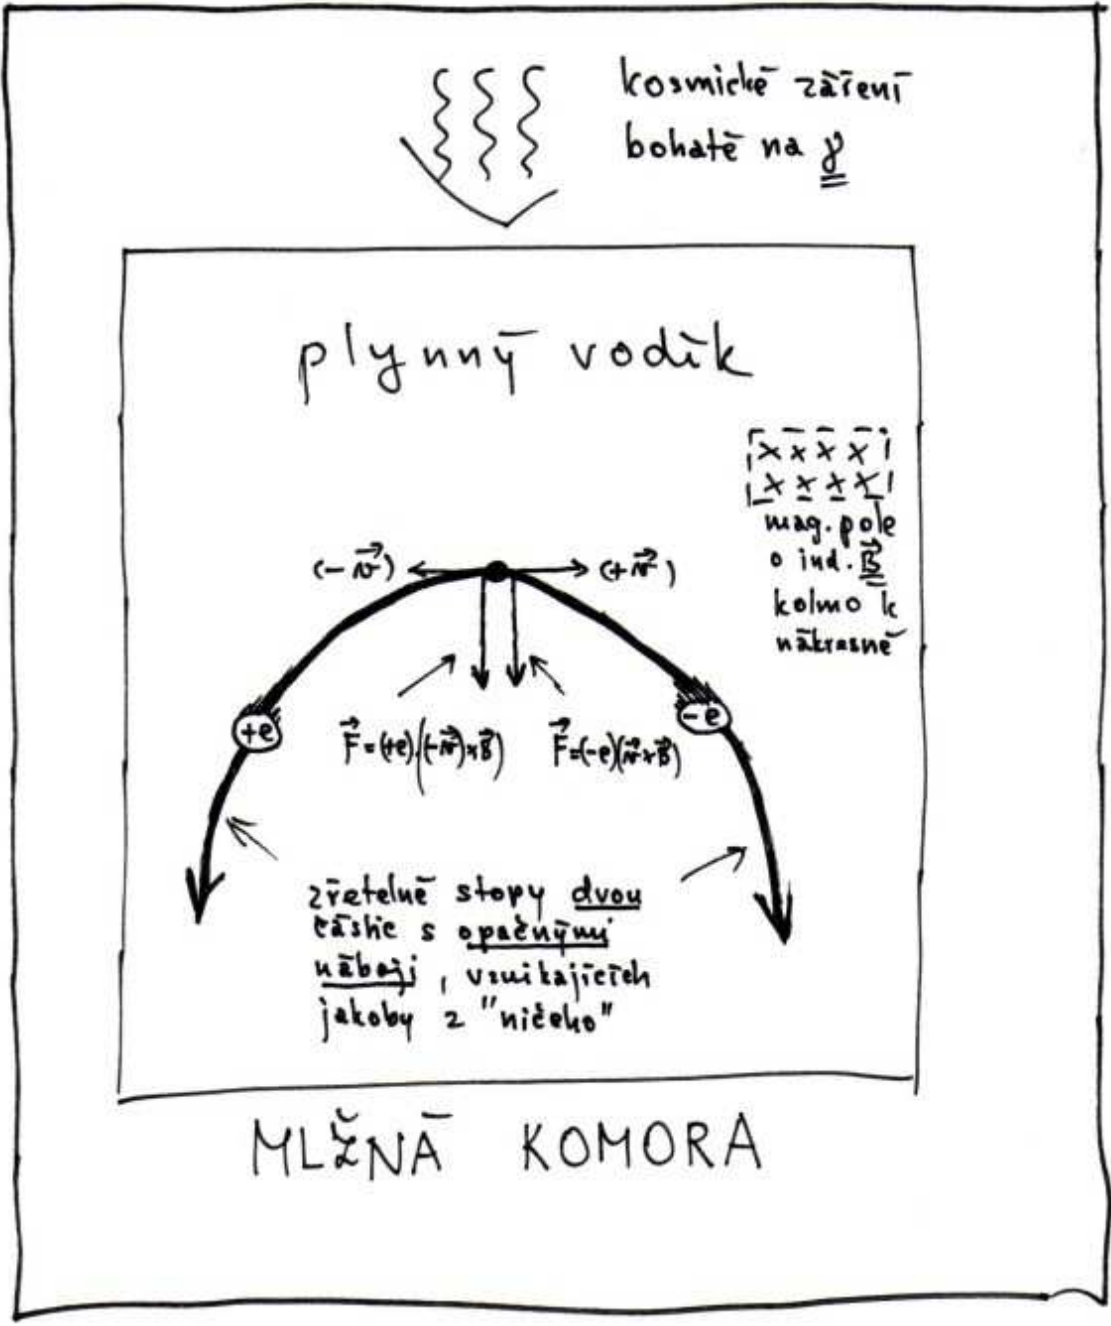 kosmické záření
bohaté na γ
plynný vodík
x x x x
x x x x
mag. pole
o ind. B⃗
kolmo k
nákresně
(-v⃗)
(+v⃗)
+e
-e
F⃗=(+e).((-v⃗)×B⃗)
F⃗=(-e)(v⃗×B⃗)
zřetelné stopy dvou
částic s opačnými
náboji, vznikajících
jakoby z "ničeho"
MLŽNÁ KOMORA